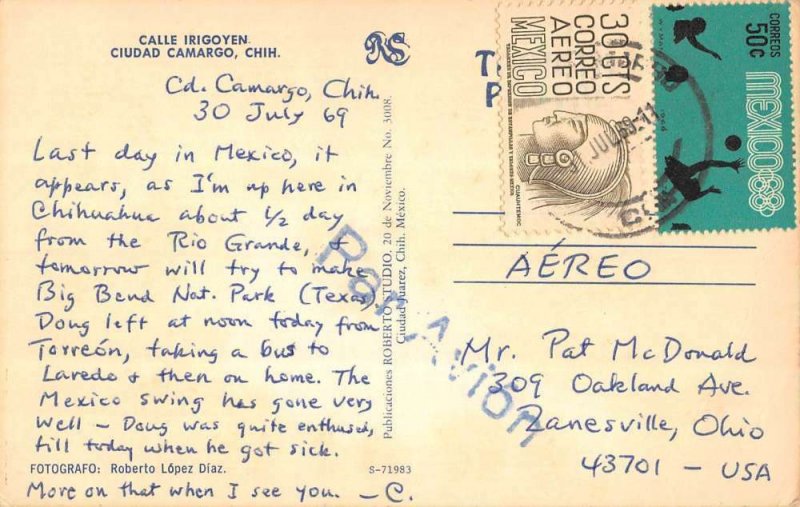 CALLE IRIGOYEN
CIUDAD CAMARGO, CHIH.
RS
Cd. Camargo, Chih.
30 July 69
Last day in Mexico, it
appears, as I'm up here in
Chihuahua about 1/2 day
from the Rio Grande, &
tomorrow will try to make
Big Bend Nat. Park (Texas).
Doug left at noon today from
Torreón, taking a bus to
Laredo & then on home. The
Mexico swing has gone very
well – Doug was quite enthused,
till today when he got sick.
FOTOGRAFO: Roberto López Díaz.
S-71983
More on that when I see you. — C.
Publicaciones ROBERTO STUDIO. 20 de Noviembre No. 3008.
Ciudad Juarez, Chih. México.
Par Avión
T.
P
30 CTS
CORREO
AEREO
MEXICO
CUAUHTEMOC
CORREOS
50c
MEXICO68
JUL 69-11
AÉREO
Mr. Pat McDonald
309 Oakland Ave.
Zanesville, Ohio
43701 – USA